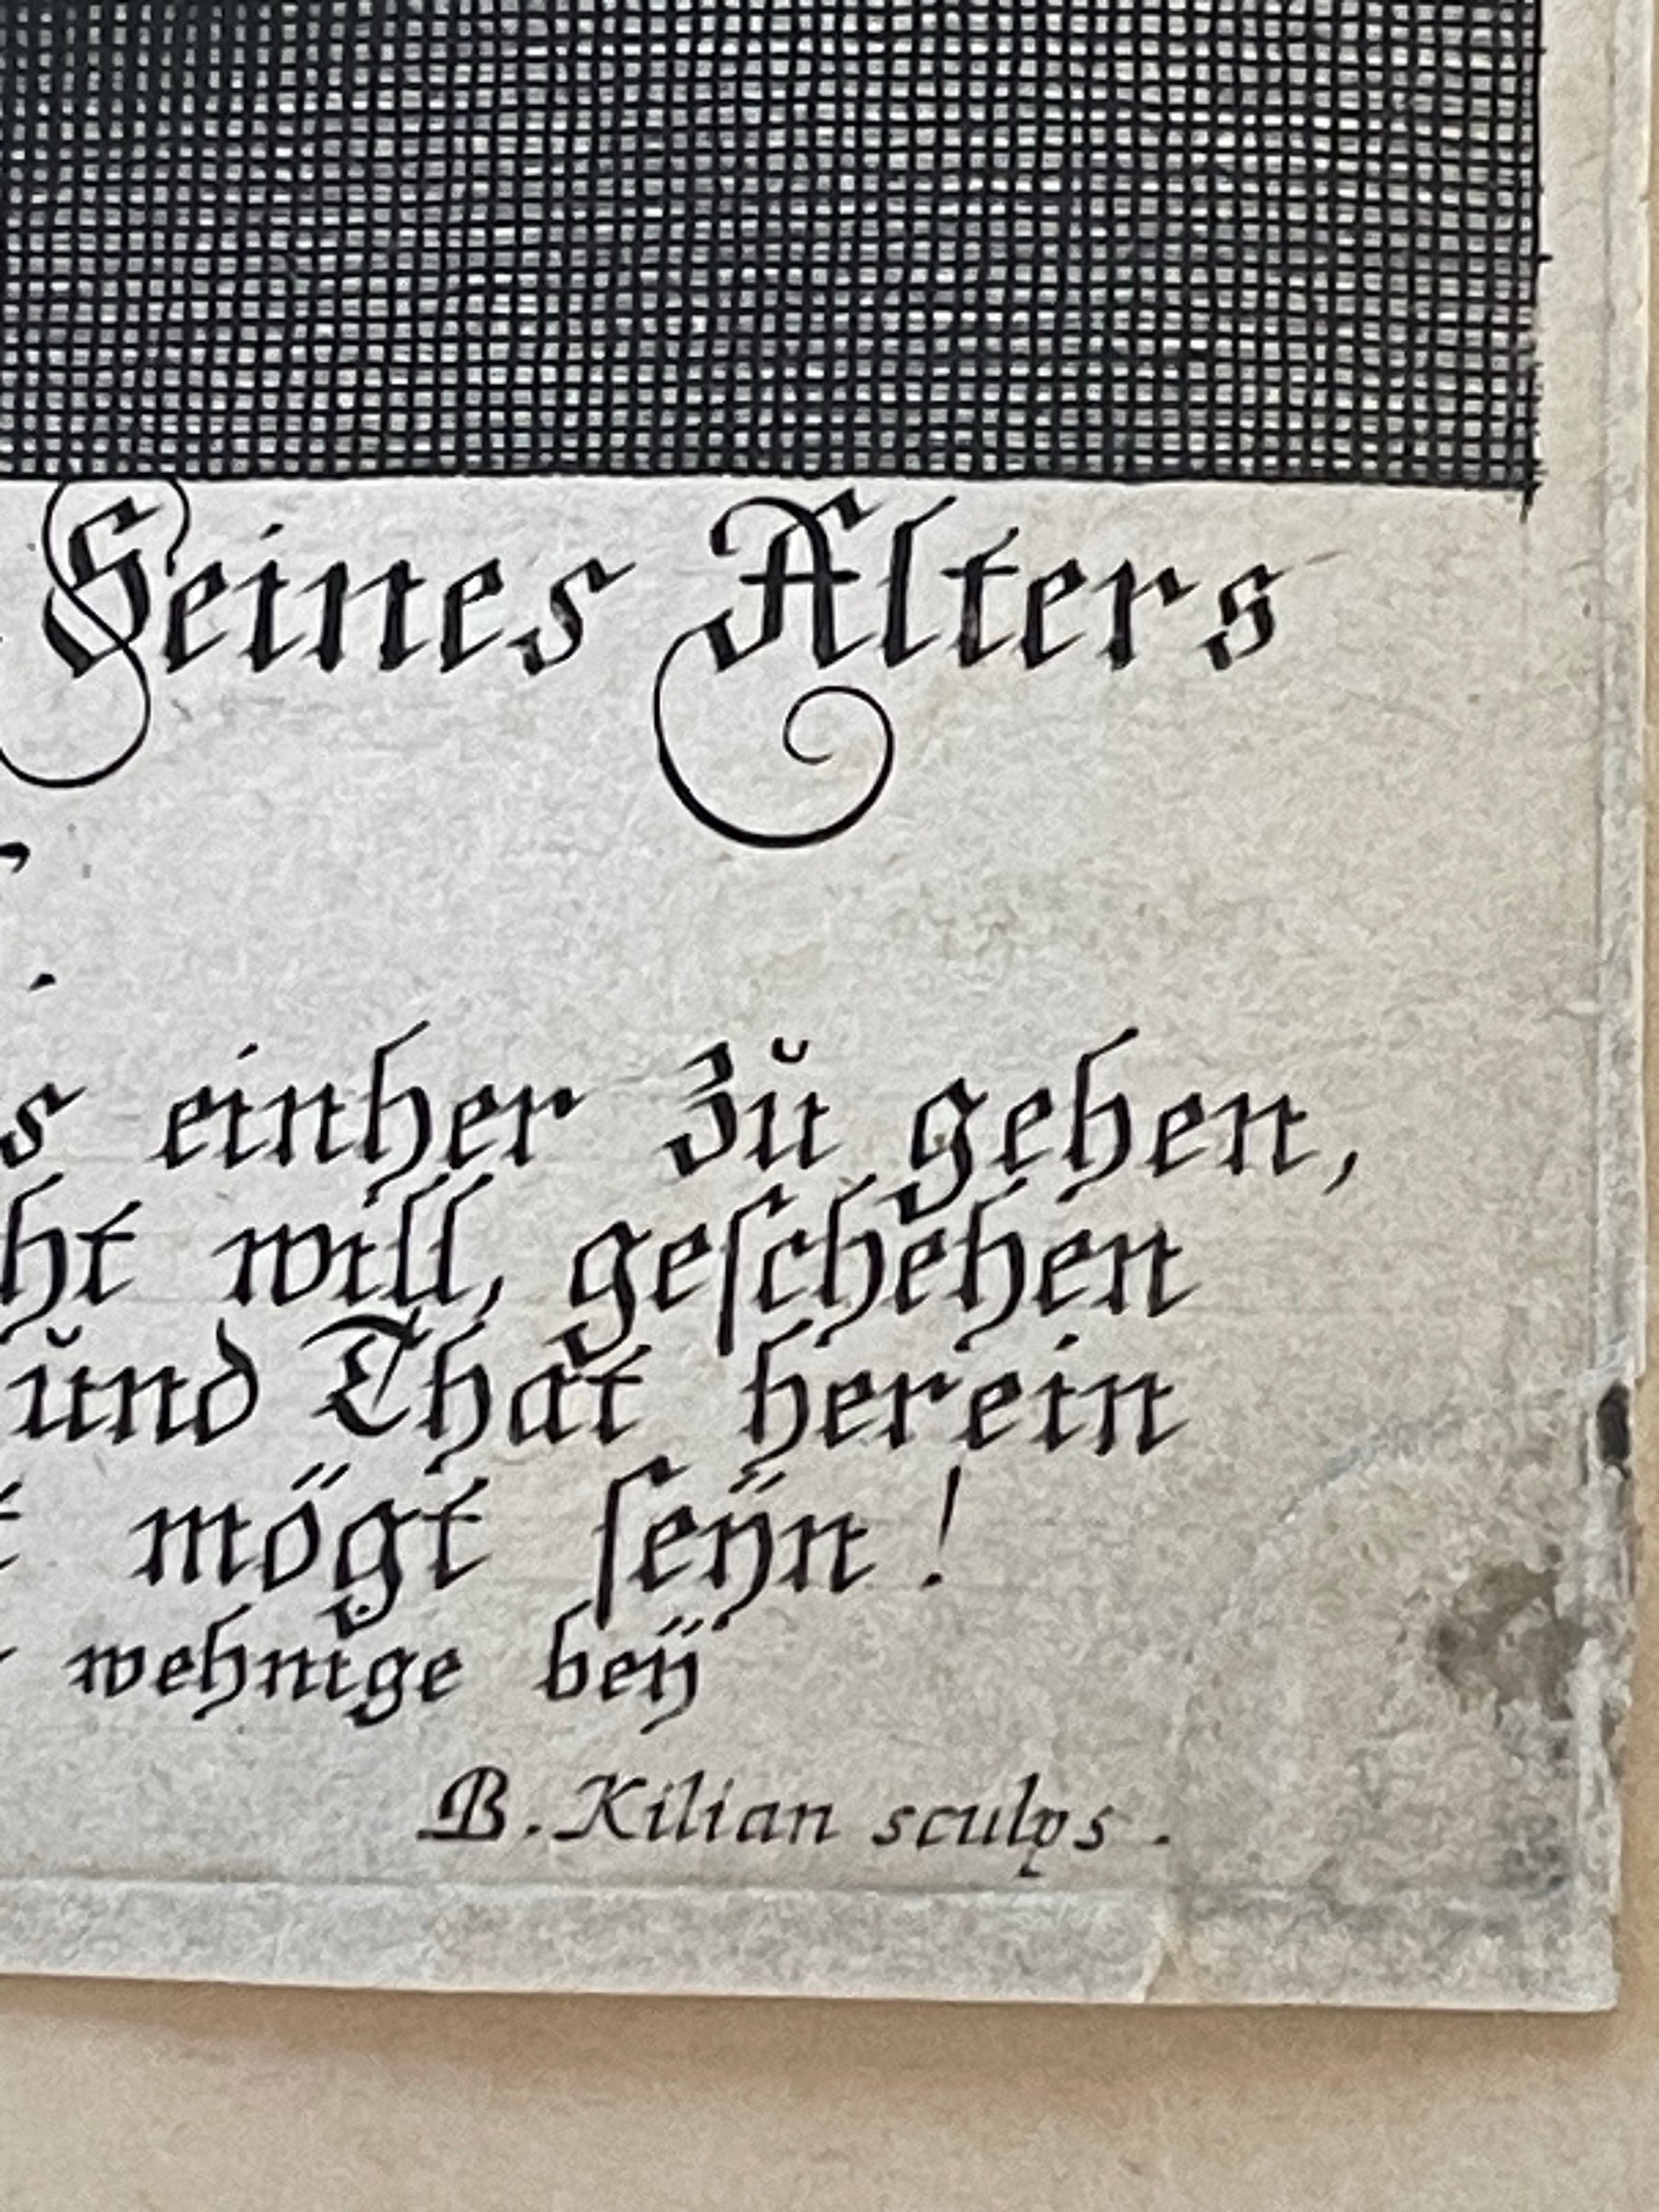 Seines Alters
s einher zŭ gehen,
ht will, geſchehen
ŭnd That herein
t mögt ſeÿn!
wehnige beÿ
B. Kilian sculps.